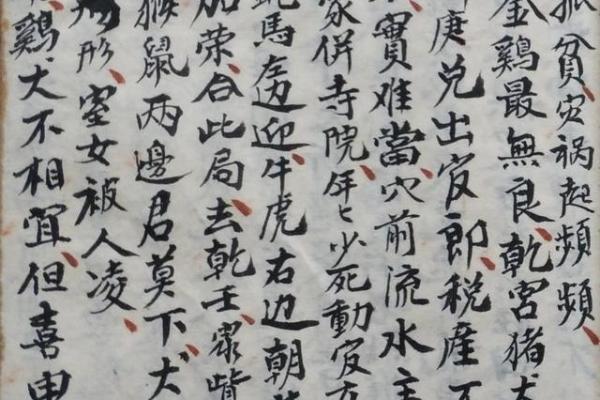 孤貧、灾祸起頻頻、
金鷄最無良、乾宮猪犬
庚兑出官郎、税産不
實难當、穴前流水主
家併寺院、年〻少死動官
蛇馬左边迎、牛虎右边朝
加荣、合此局、去乾壬、眾皆
猴鼠兩邊君莫下、犬
形、室女被人凌、
鷄犬不相宜、但喜申